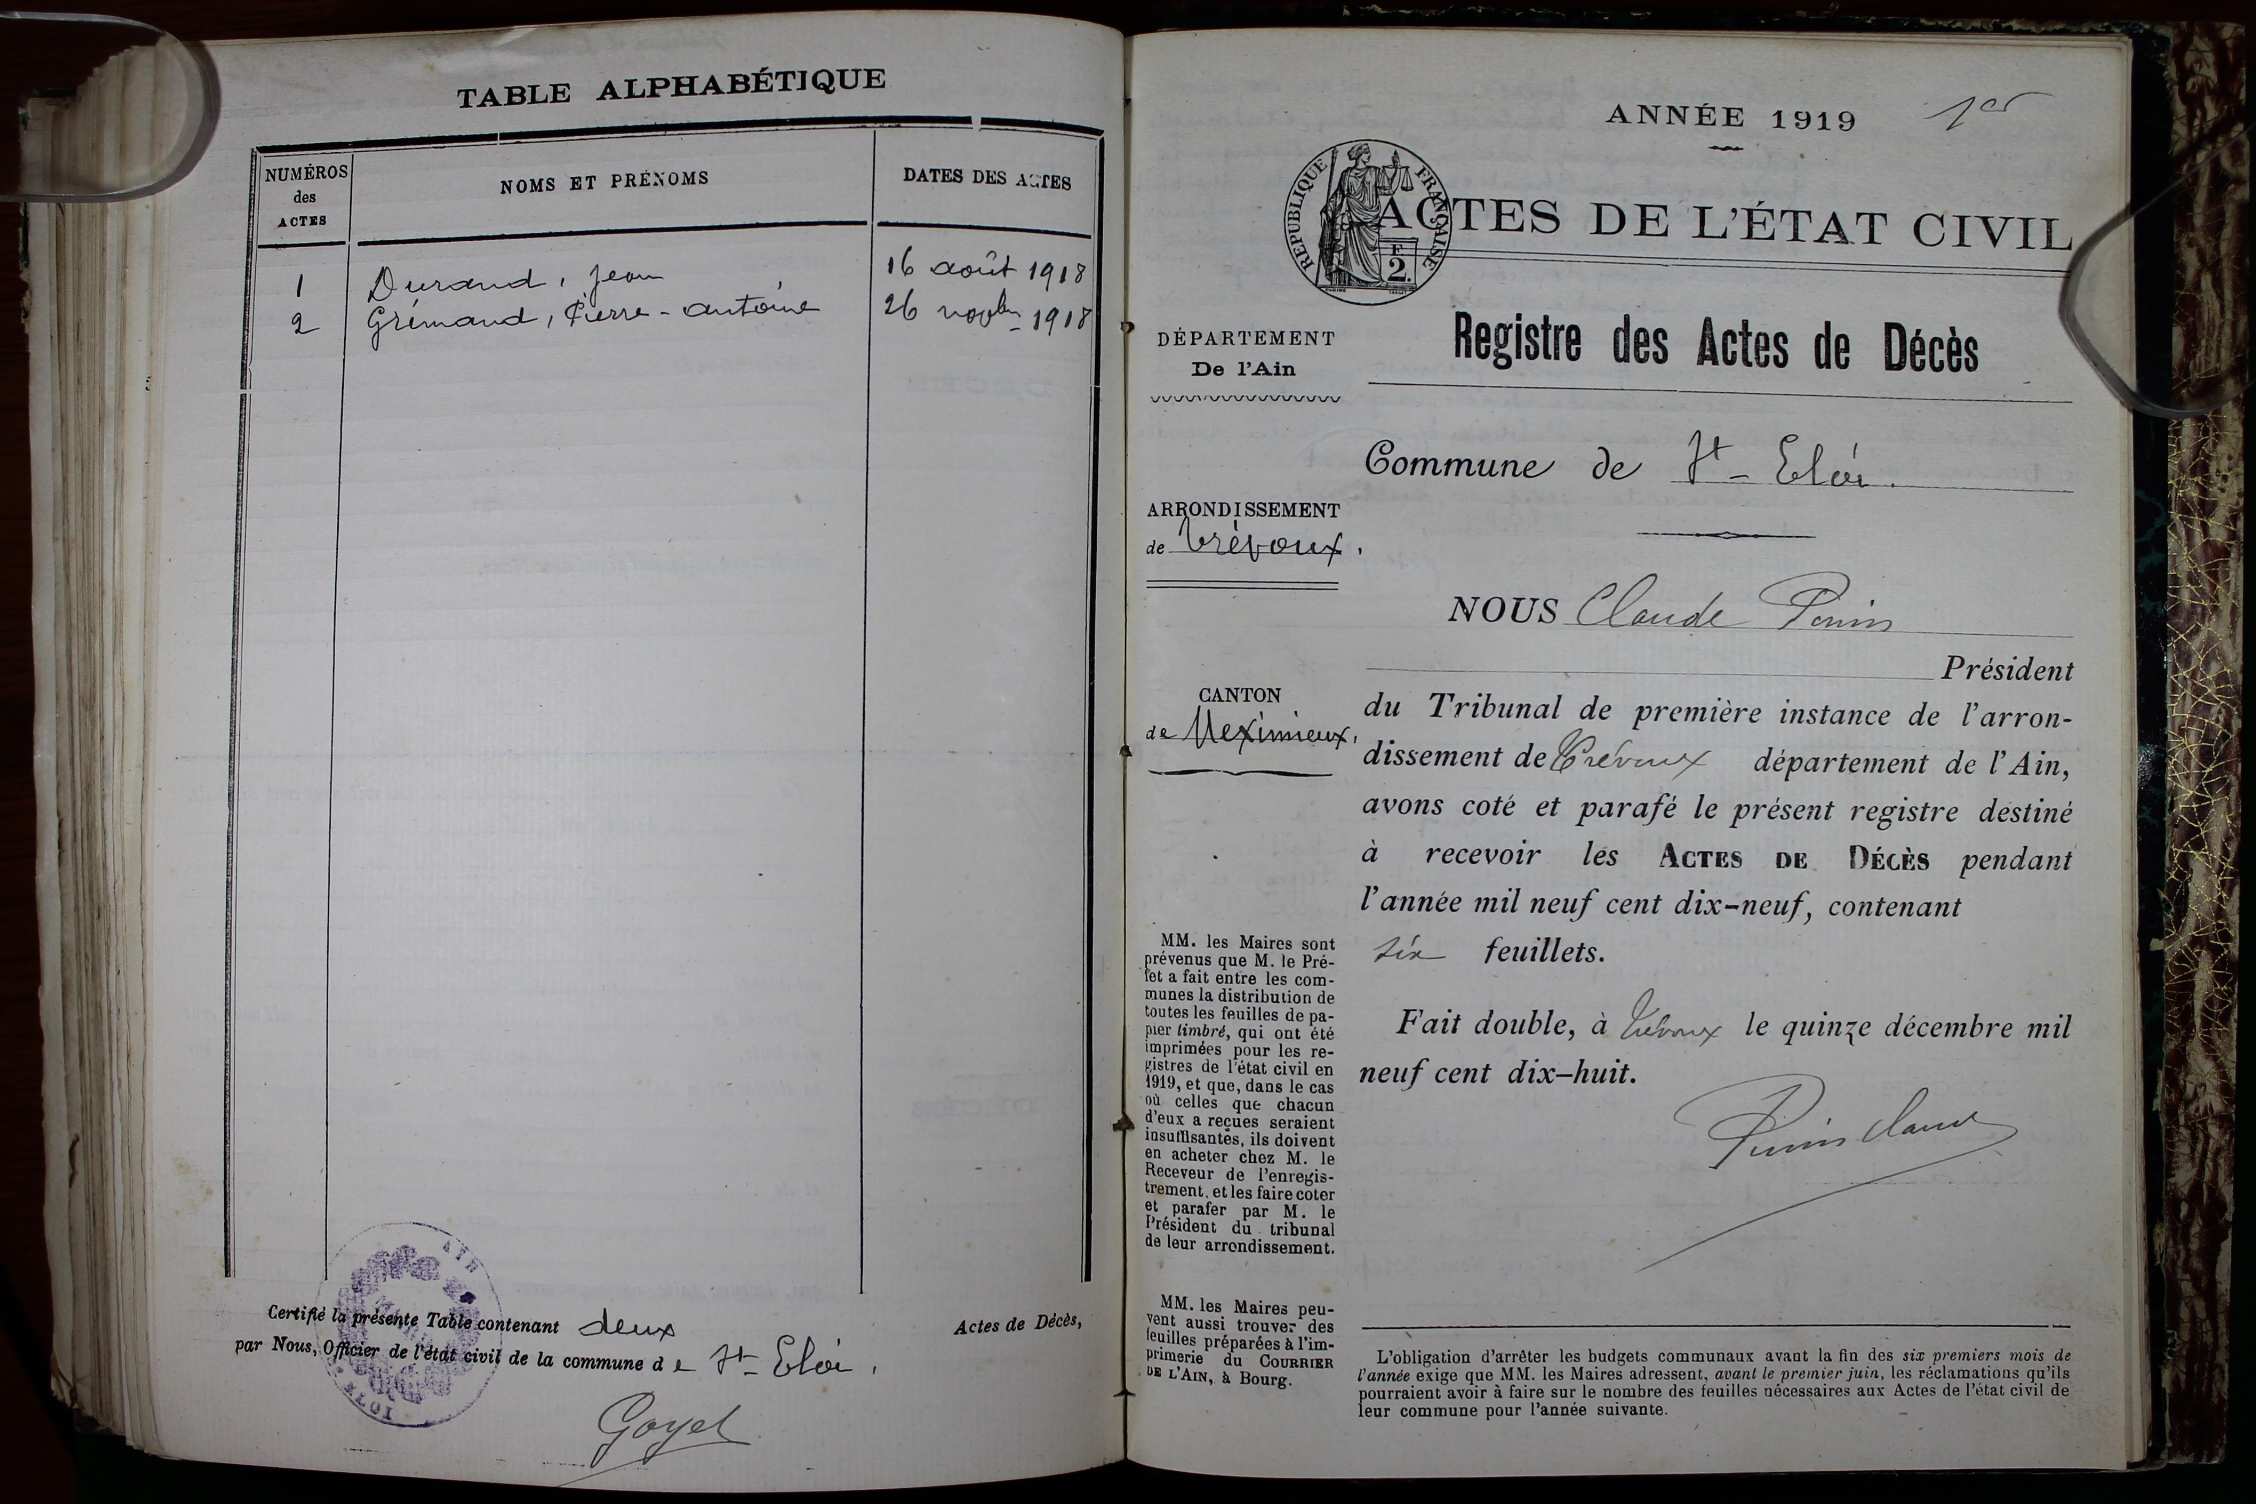 TABLE ALPHABÉTIQUE
NUMÉROS
des
ACTES
NOMS ET PRÉNOMS
DATES DES ACTES
1 Durand, Jean 16 août 1918
2 Grimaud, Pierre-antoine 26 novbre 1918
AIN
Certifié la présente Table contenant deux Actes de Décès,
par Nous, Officier de l'état civil de la commune de St-Eloi.
Goyet
ANNÉE 1919 1er
REPUBLIQUE FRANÇAISE
F.
2.
ACTES DE L'ÉTAT CIVIL
Registre des Actes de Décès
DÉPARTEMENT
De l'Ain
Commune de St-Eloi.
ARRONDISSEMENT
de Trévoux.
CANTON
de Meximieux.
NOUS Claude
Président
du Tribunal de première instance de l'arron-
dissement de Trévoux département de l'Ain,
avons coté et parafé le présent registre destiné
à recevoir les ACTES DE DÉCÈS pendant
l'année mil neuf cent dix-neuf, contenant
six feuillets.
Fait double, à Trévoux le quinze décembre mil
neuf cent dix-huit.
MM. les Maires sont
prévenus que M. le Pré-
fet a fait entre les com-
munes la distribution de
toutes les feuilles de pa-
pier timbré, qui ont été
imprimées pour les re-
gistres de l'état civil en
1919, et que, dans le cas
où celles que chacun
d'eux a reçues seraient
insuffisantes, ils doivent
en acheter chez M. le
Receveur de l'enregis-
trement, et les faire coter
et parafer par M. le
Président du tribunal
de leur arrondissement.
MM. les Maires peu-
vent aussi trouver des
feuilles préparées à l'im-
primerie du COURRIER
DE L'AIN, à Bourg.
L'obligation d'arrêter les budgets communaux avant la fin des six premiers mois de
l'année exige que MM. les Maires adressent, avant le premier juin, les réclamations qu'ils
pourraient avoir à faire sur le nombre des feuilles nécessaires aux Actes de l'état civil de
leur commune pour l'année suivante.